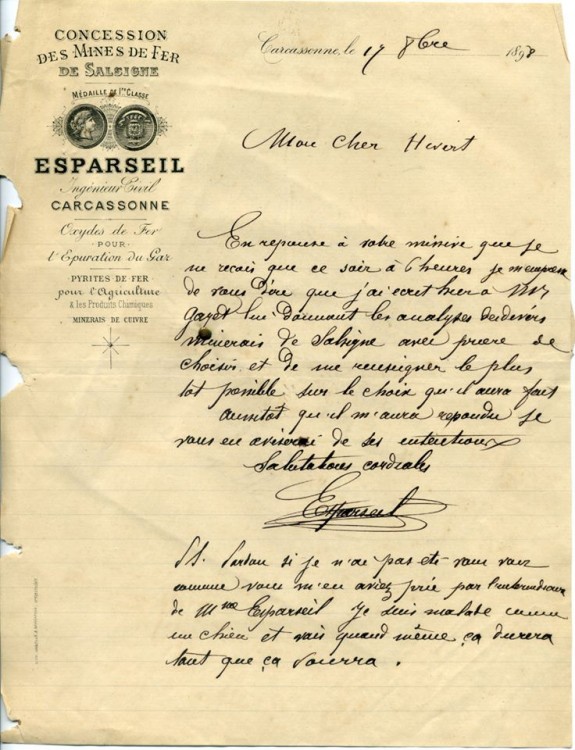 CONCESSION
DES MINES DE FER
DE SALSIGNE
MÉDAILLE DE 1RE CLASSE
ESPARSEIL
Ingénieur Civil
CARCASSONNE
Oxydes de Fer
POUR
l'Epuration du Gaz
PYRITES DE FER
pour l'Agriculture
& les Produits Chimiques
MINERAIS DE CUIVRE
Carcassonne, le 17 8bre 1898
Mon cher Hivert
En reponse à votre missive que je
ne reçois que ce soir à 6 heures je m'empresse
de vous dire que j'ai ecrit hier à
lui donnant les analyses des divers
minerais de Salsigne avec prière de
choisir et de me renseigner le plus
tot possible sur le choix qu'il aura fait
aussitot qu'il m'aura repondu je
vous en aviserai de ses intentions
Salutations cordiales
Esparseil
P.S. Pardon si je n'ai pas été vous voir
comme vous m'en aviez prié par l'intermédiaire
de Mme Esparseil Je suis malade comme
un chien et vais quand même ça durera
tant que ça pourra.